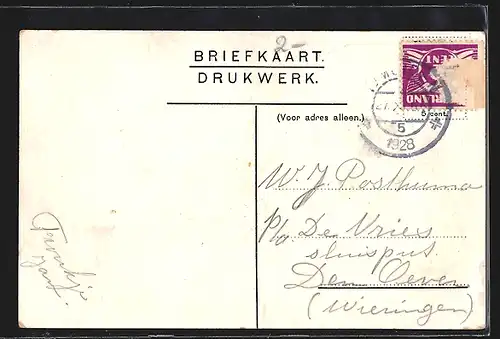 2-
BRIEFKAART.
DRUKWERK.
(Voor adres alleen.)
CENT
RLAND
5 cent.
5
1928
W. J. Posthuma
p/o De Vries
sluisput
Den Oever
(Wieringen)